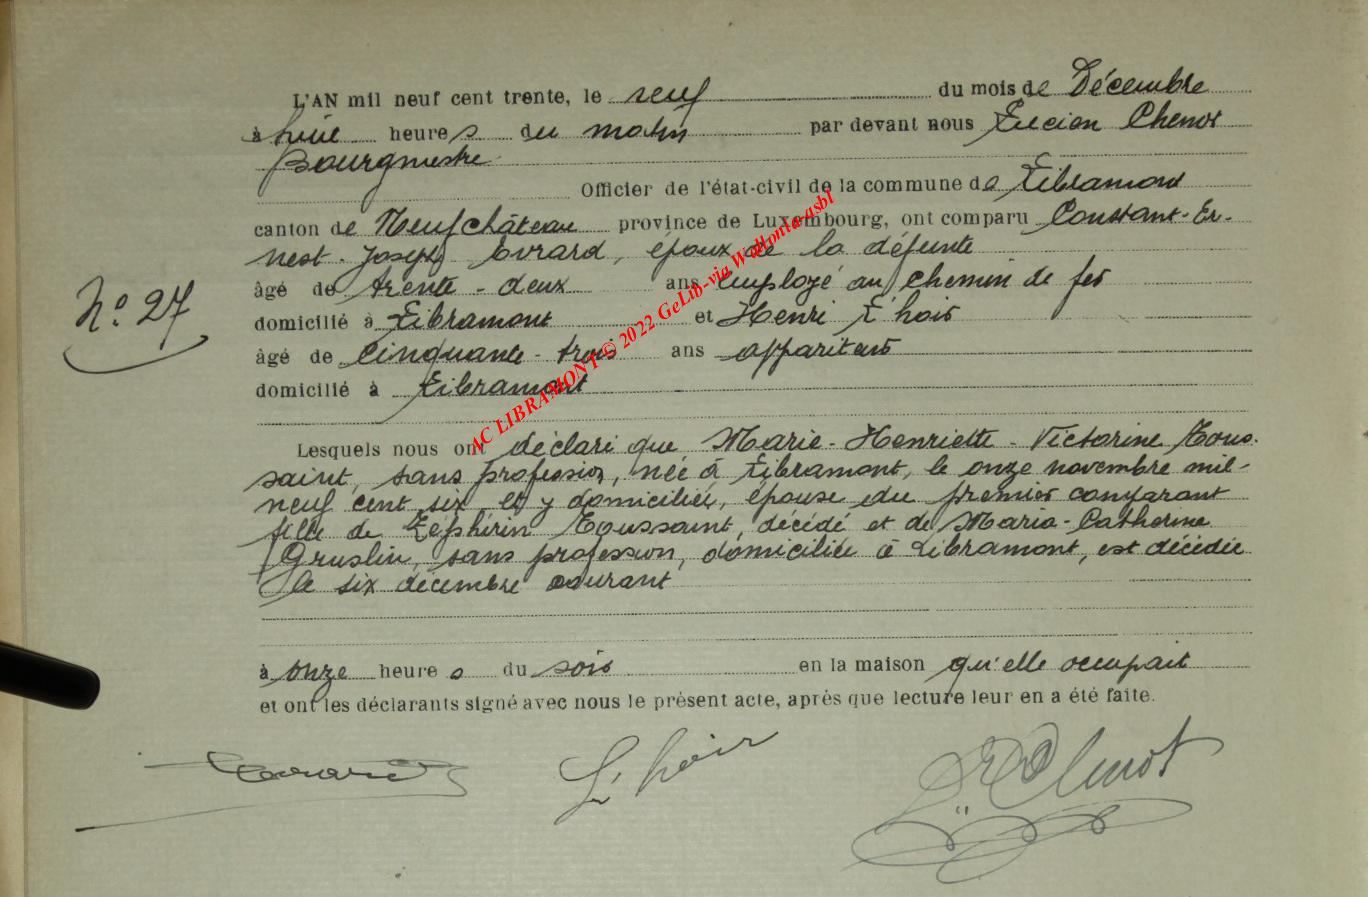 L'AN mil neuf cent trente, le neuf du mois de Décembre
à huit heures du matin par devant nous Lucien Chenot
Bourgmestre
Officier de l'état-civil de la commune de Libramont
canton de Neufchâteau province de Luxembourg, ont comparu Constant-Er-
nest-Joseph Evrard, époux de la défunte
âgé de trente-deux ans employé au chemin de fer
domicilié à Libramont et Henri L'hoir
âgé de Cinquante-trois ans appariteur
domicilié à Libramont
N° 27
AC LIBRAMONT © 2022 GeLib-via Wallonia-asbl
Lesquels nous ont déclaré que Marie-Henriette-Victorine Tous-
saint, sans profession, née à Libramont, le onze novembre mil-
neuf cent six et y domiciliée, épouse du premier comparant
fille de Zéphirin Toussaint, décédé et de Marie-Catherine
Gruslin, sans profession, domiciliée à Libramont, est décédée
le six décembre courant
à onze heures du soir en la maison qu'elle occupait
et ont les déclarants signé avec nous le présent acte, après que lecture leur en a été faite.
Evrard L'hoir Chenot